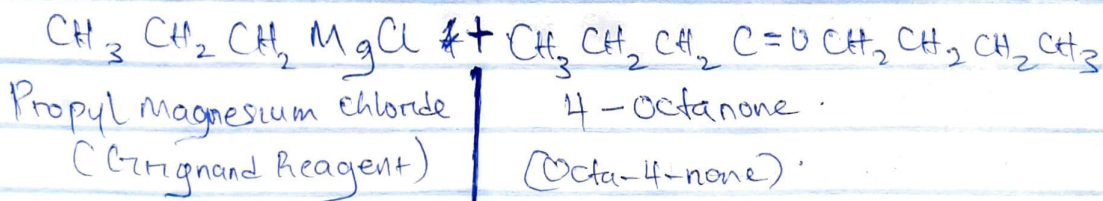 CH₃ CH₂ CH₂ MgCl + CH₃ CH₂ CH₂ C=O CH₂ CH₂ CH₂ CH₃
Propyl Magnesium Chloride 4-octanone.
(Grignand Reagent) (Octa-4-none).